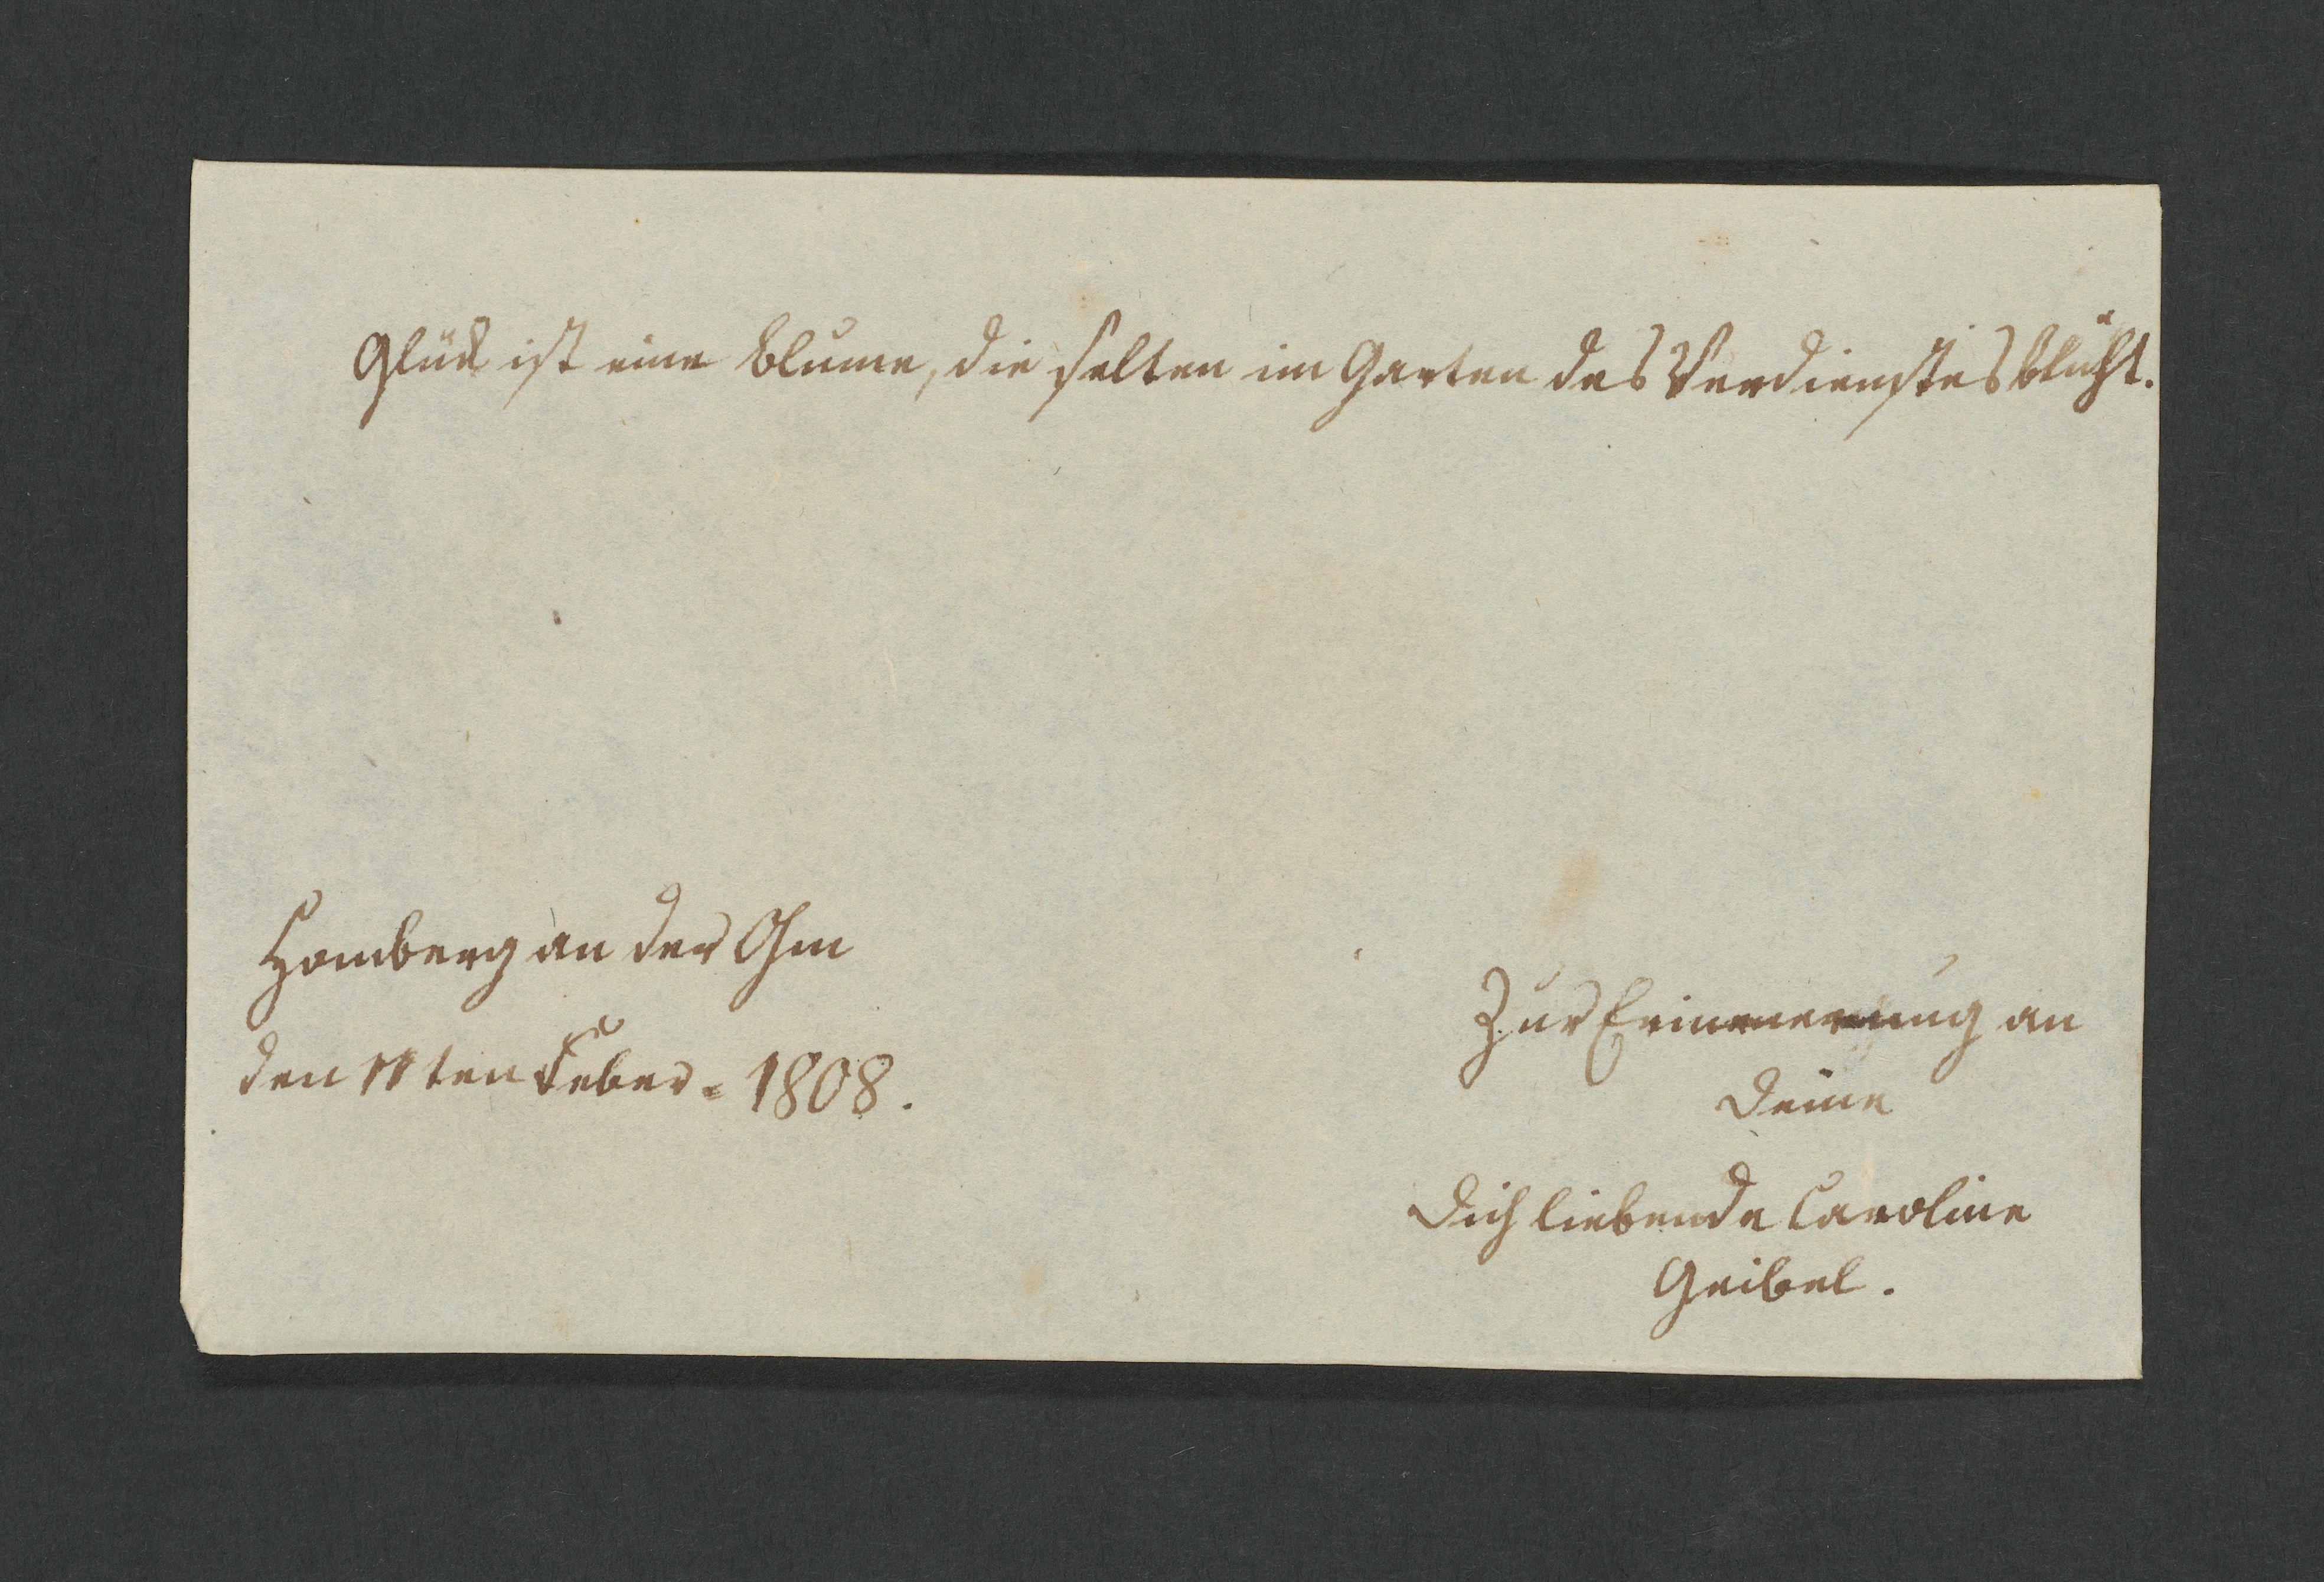 Glük ist eine Blume, die selten im Garten des Verdienstes blüht.
Homberg an der Ohm
den 11ten Feber. 1808.
Zur Erinnerung an
Deine
Dich liebende Caroline
Geibel.